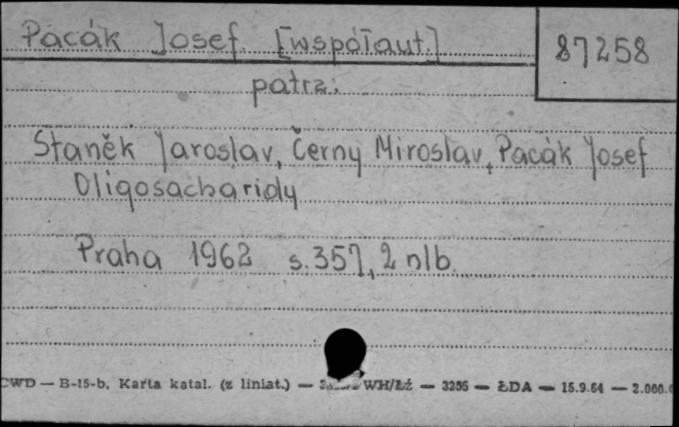 Pacák Josef [współaut.]
87258
patrz:
Staněk Jaroslav, Černy Miroslav, Pacák Josef
Oligosacharidy
Praha 1962 s. 357, 2 nlb.
CWD — B-15-b. Karta katal. (z liniat.) — WH/Łź — 3295 — ŁDA — 15.9.64 — 2.000.0